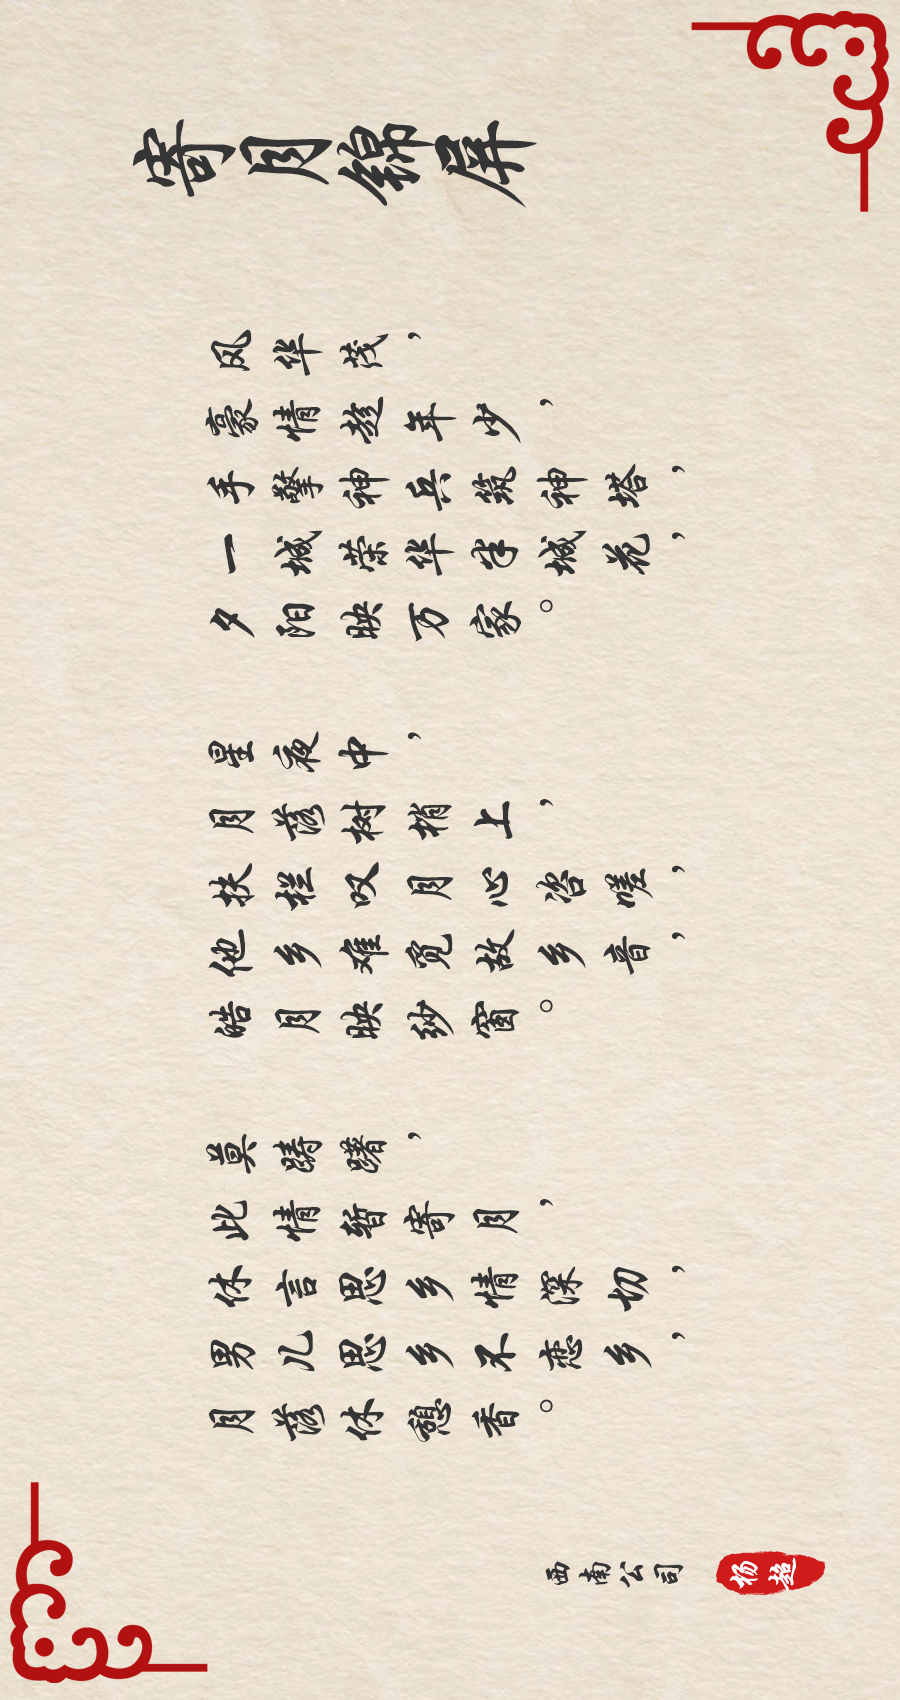 寄月锦屏
风华茂，
豪情趁年少，
手擎神兵筑神塔，
一城荣华半城花，
夕阳映万家。
星夜中，
月落树梢上，
扶栏叹月心咨嗟，
他乡难觅故乡音，
皓月映纱窗。
莫踌躇，
此情暂寄月，
休言思乡情深切，
男儿思乡不恋乡，
月落休憩香。
西南公司
杨超